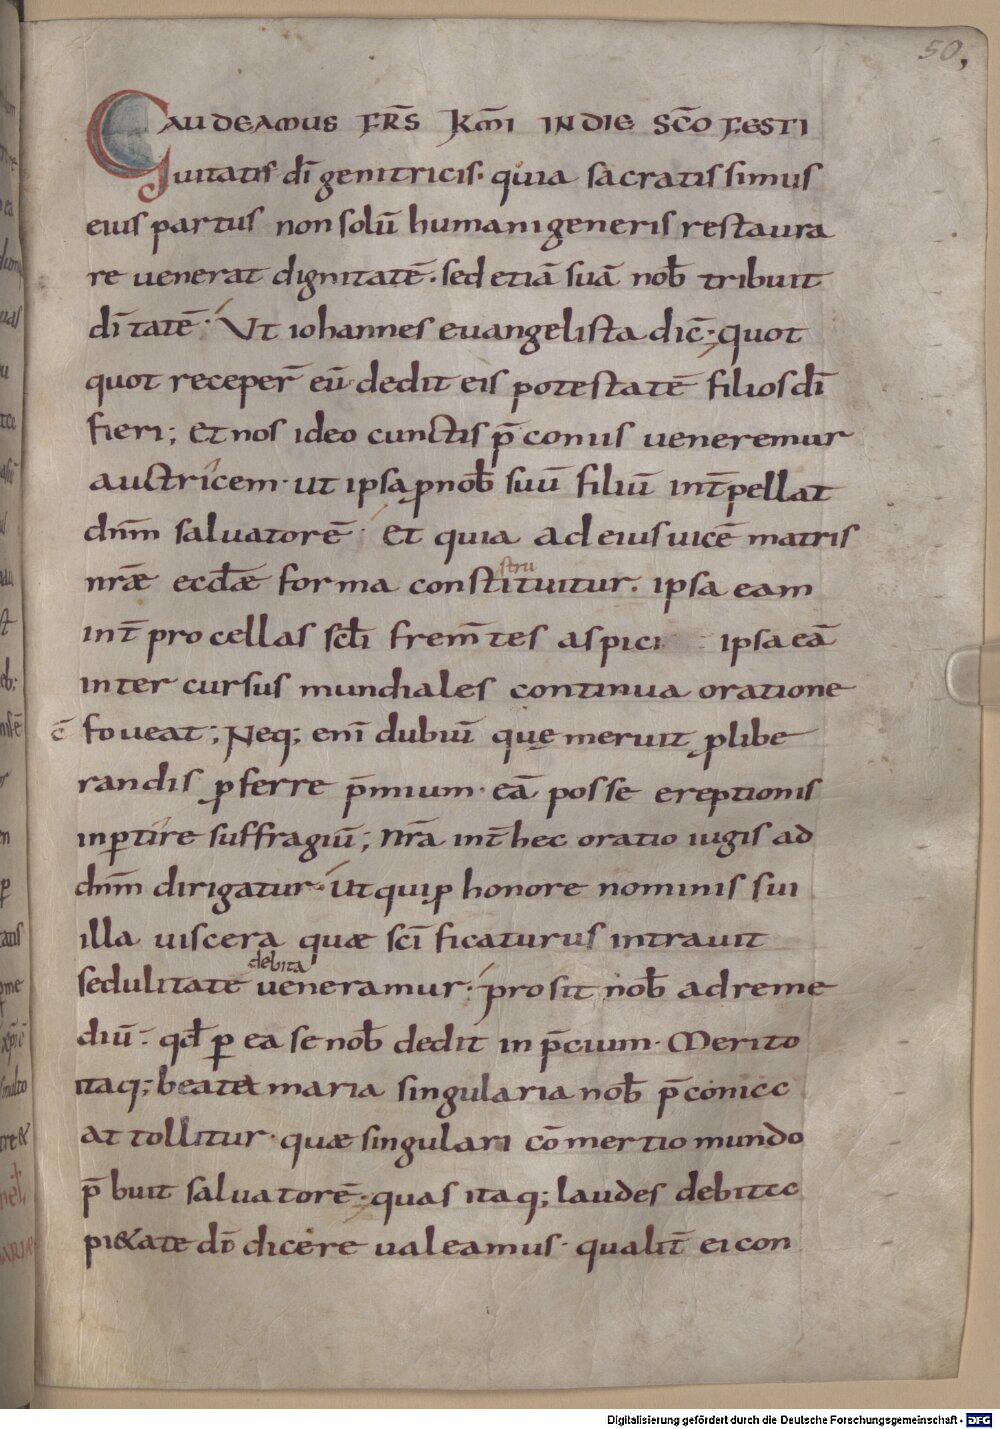 50,
GAUDEAMUS FR̄S K̄MI IN DIE SC̄O FESTI
uitatis dī genitricis. quia sacratissimus
eius partus non solū humani generis restaura
re uenerat dignitatē. sed etiā suā nob̄ tribuit
dī tatē. Ut iohannes euangelista dic̄; quot
quot receper̄ eū dedit eis potestatē filios dī
fieri; Et nos ideo cunctis p̄coniis ueneremur
auctricem. ut ipsa ꝑ nob̄ suū filiū int̄pellat
dn̄m saluatorē. Et quia ad eius uicē matris
nr̄ae eccl̄ae forma constituitur. ipsa eam
stru
int̄ procellas scl̄i frem̄tes aspici ipsa eā
inter cursus mundiales continua oratione
ē foueat; Neq; eni dubiū que meruit ꝓ libe
randis ꝓferre p̄mium. eā posse ereptionis
inꝑtire suffragiū; Nr̄a int̄ hec oratio iugis ad
dn̄m dirigatur. Ut qui ꝓ honore nominis sui
illa uiscera quae scī ficaturus intrauit
debita
sedulitate ueneramur. prosit nob̄ ad reme
diū. qd̄ ꝑ ea se nob̄ dedit in p̄cium. Merito
itaq; beatae maria singularia nob̄ p̄conicc
at tollitur. quae singulari cōmertio mundo
p̄buit saluatorē. quas itaq; laudes debitcc
pi&ate dī dicere ualeamus. qualit̄ ei con
Digitalisierung gefördert durch die Deutsche Forschungsgemeinschaft - DFG